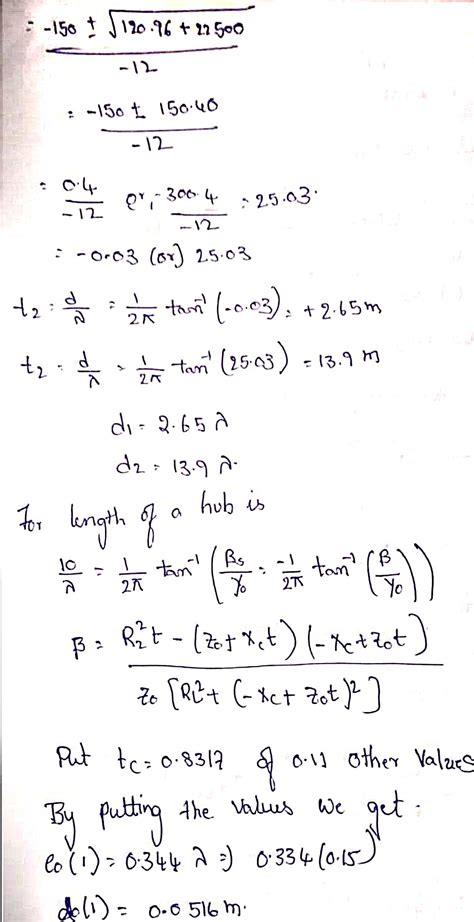 = -150 ± √120.96 + 22500 / -12
= -150 ± 150.40 / -12
= 0.4 / -12 or, -300.4 / -12 = 25.03.
= -0.03 (or) 25.03
t2 = d/λ = 1/2π tan⁻¹ (-0.03) = + 2.65 m
t2 = d/λ = 1/2π tan⁻¹ (25.03) = 13.9 m
d1 = 2.65 λ
d2 = 13.9 λ.
For length of a hub is
10/λ = 1/2π tan⁻¹ (Bs/Yo = -1/2π tan⁻¹ (B/Yo))
B = RL²t - (Zo + XLt) (-XL + Zot) / Zo [RL² + (-XL + Zot)²]
Put tc = 0.8317 of 0.11 other values
By putting the values we get.
lo(1) = 0.344 λ =) 0.334 (0.15)
do(1) = 0.0516 m.